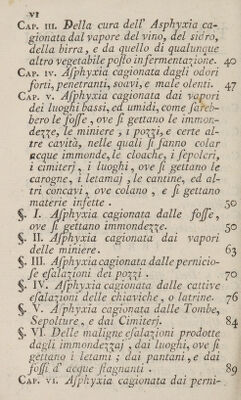 VI
CAP. III. Della cura dell' Asphyxia ca-
gionata dal vapore del vino, del siero,
della birra, e da quello di qualunque
altro vegetabile posto in fermentazione. 40
CAP. IV. Asphyxia cagionata dagli odori
forti, penetranti, soavi, e male olenti. 47
CAP. V. Asphyxia cagionata dai vapori
dei luoghi bassi, ed umidi, come sareb-
bero le fosse, ove si gettano le immon-
dezze, le miniere, i pozzi, e certe al-
tre cavità, nelle quali si fanno colar
acque immonde, le cloache, i sepolcri,
i cimiterj, i luoghi, ove si gettano le
carogne, i letamaj, le cantine, ed al-
tri concavi, ove colano, e si gettano
materie infette. 50
§. I. Asphyxia cagionata dalle fosse,
ove si gettano immondezze. 50
§. II. Asphyxia cagionata dai vapori
delle miniere. 63
§. III. Asphyxia cagionata dalle pernicio-
se esalazioni dei pozzi. 70
§. IV. Asphyxia cagionata dalle cattive
esalazioni delle chiaviche, o latrine. 76
§. V. Asphyxia cagionata dalle Tombe,
Sepolture, e dai Cimiterj. 84
§. VI. Delle maligne esalazioni prodotte
dagli immondezzaj, dai luoghi, ove si
gettano i letami; dai pantani, e dai
fossi d' acque stagnanti. 89
CAP. VI. Asphyxia cagionata dai perni-